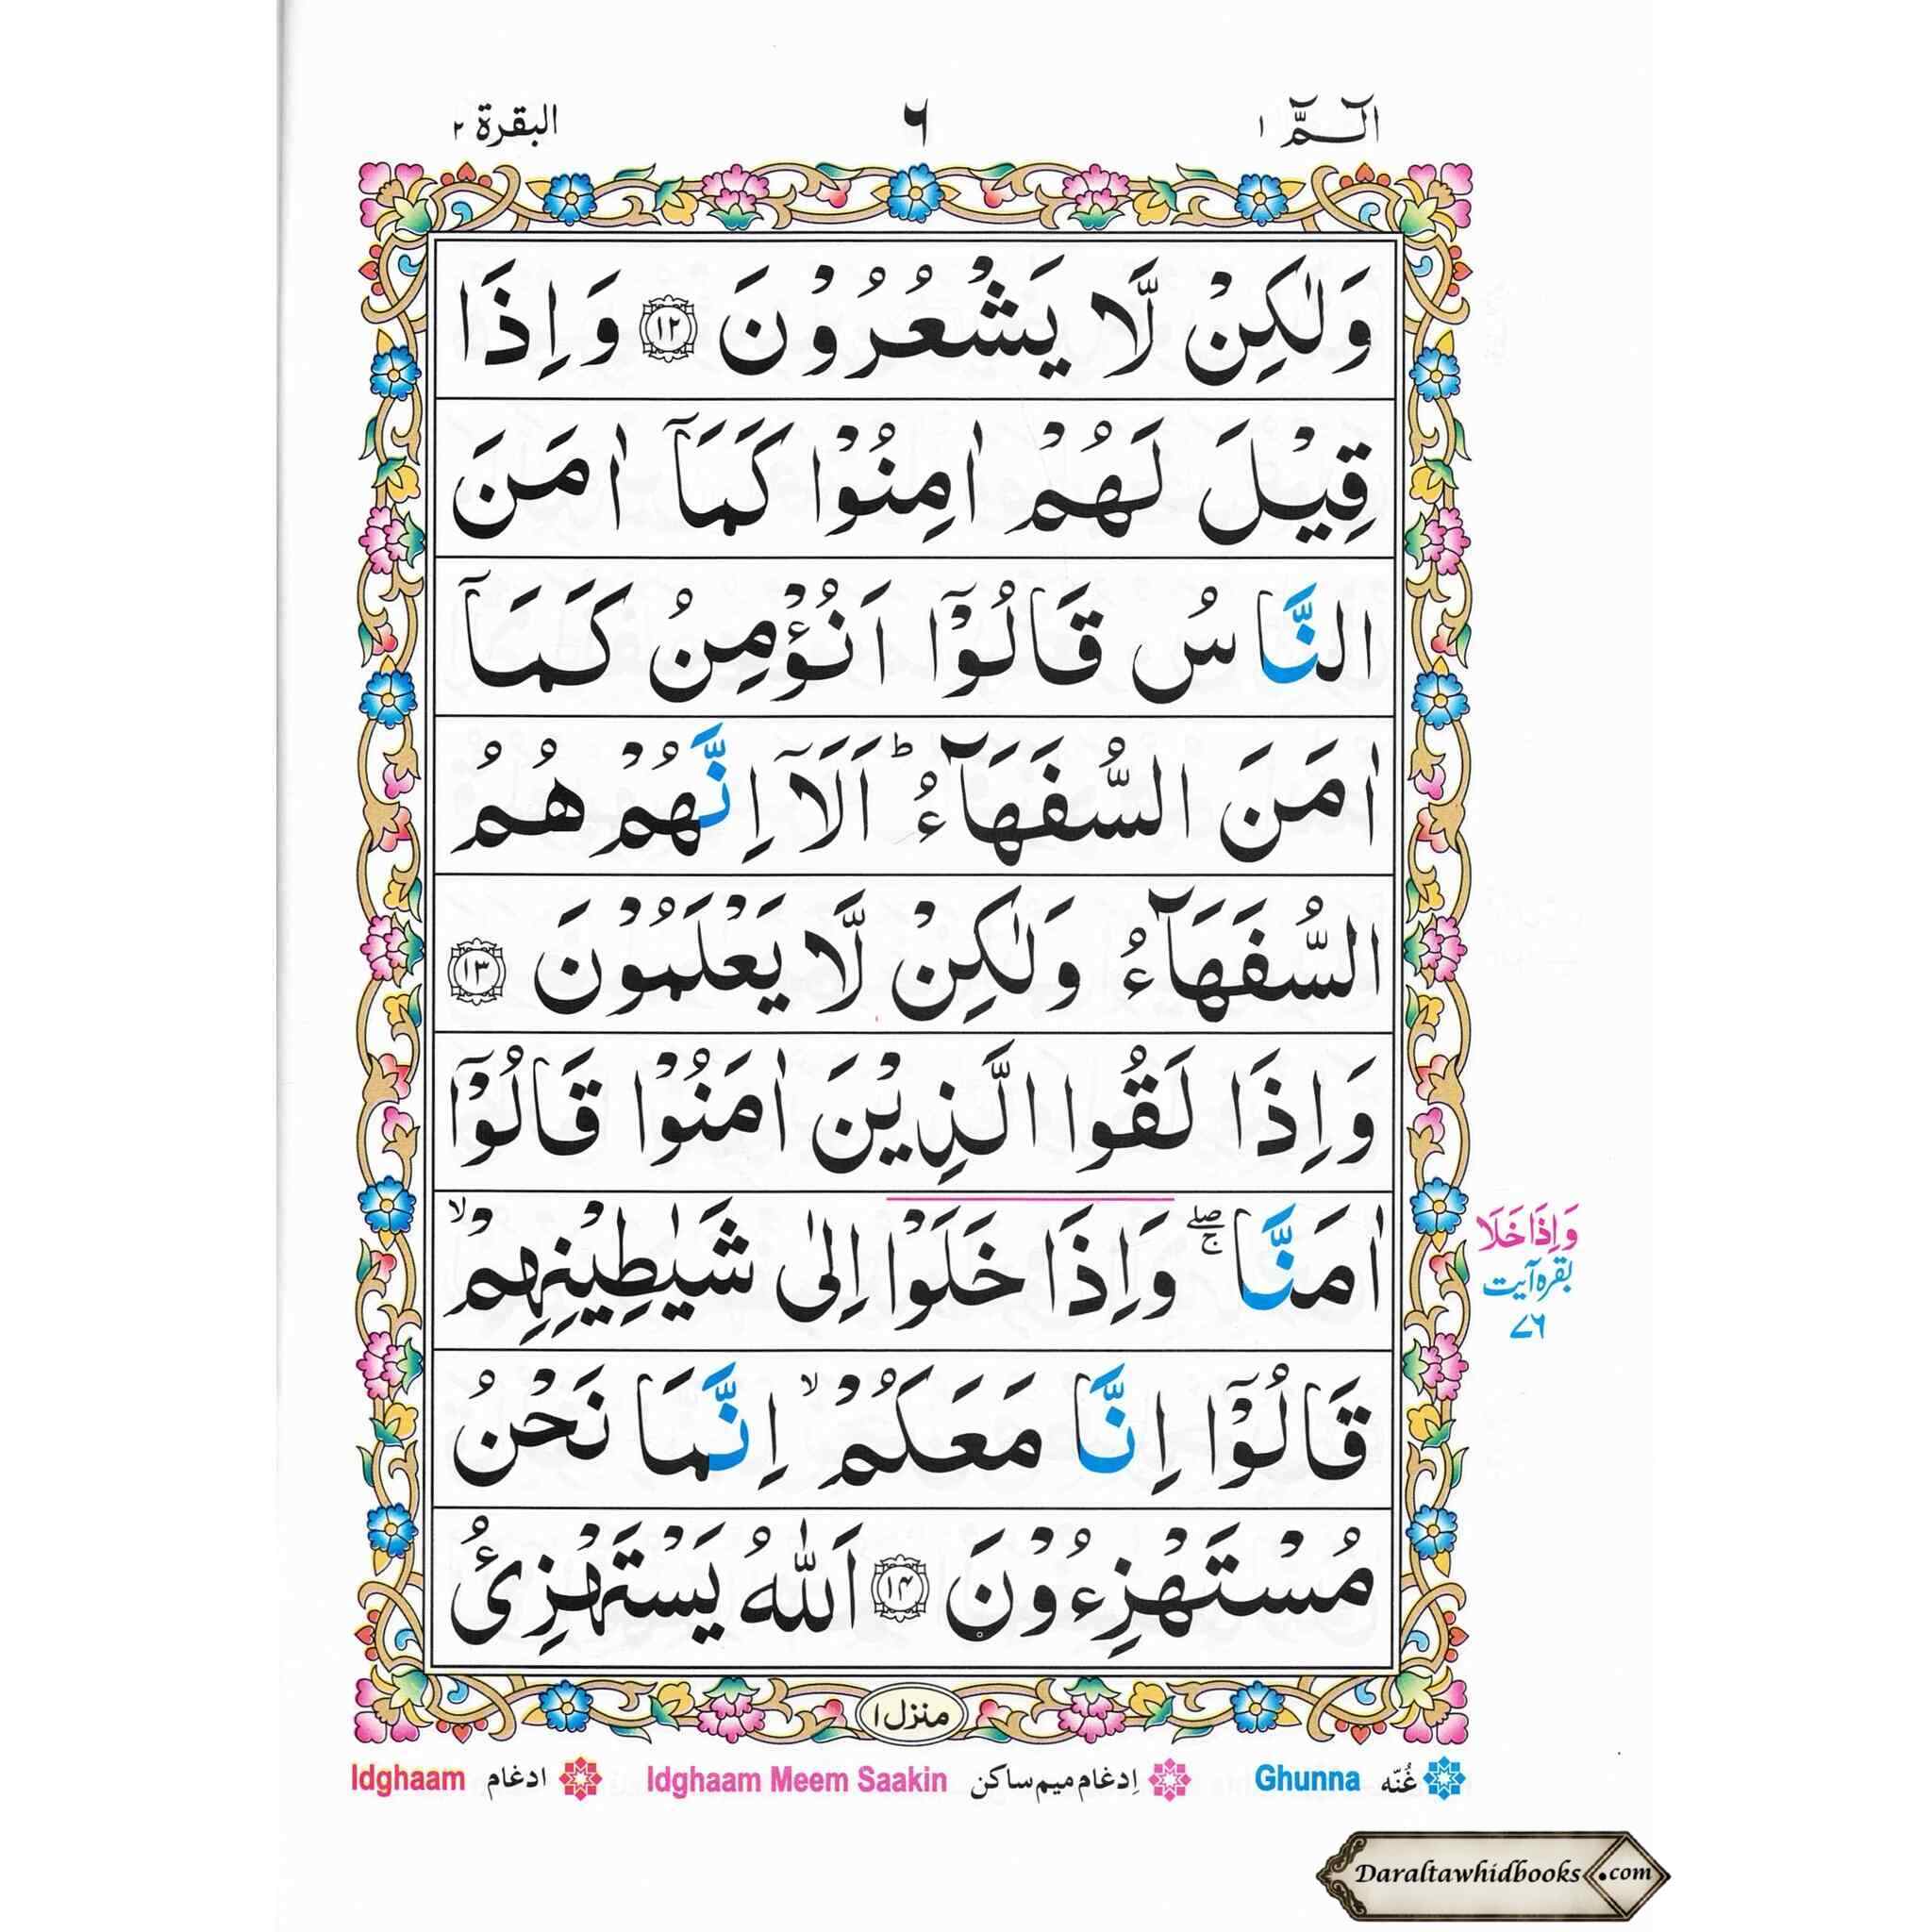 الٓـمّٓ ۱
۶
البقرة ۲
وَلٰكِنْ لَّا يَشْعُرُوْنَ ۝۱۲ وَاِذَا
قِيْلَ لَهُمْ اٰمِنُوْا كَمَاۤ اٰمَنَ
النَّاسُ قَالُوْۤا اَنُؤْمِنُ كَمَاۤ
اٰمَنَ السُّفَهَآءُ ؕ اَلَاۤ اِنَّهُمْ هُمُ
السُّفَهَآءُ وَلٰكِنْ لَّا يَعْلَمُوْنَ ۝۱۳
وَاِذَا لَقُوا الَّذِيْنَ اٰمَنُوْا قَالُوْۤا
اٰمَنَّا ۚۖ وَاِذَا خَلَوْا اِلٰى شَيٰطِيْنِهِمْ ۙ
قَالُوْۤا اِنَّا مَعَكُمْ ۙ اِنَّمَا نَحْنُ
مُسْتَهْزِءُوْنَ ۝۱۴ اَللّٰهُ يَسْتَهْزِئُ
وَاِذَا خَلَا
بقره آیت
۷۶
منزل ۱
غُنّه Ghunna
اِدغام میم ساکن Idghaam Meem Saakin
ادغام Idghaam
Daraltawhidbooks.com